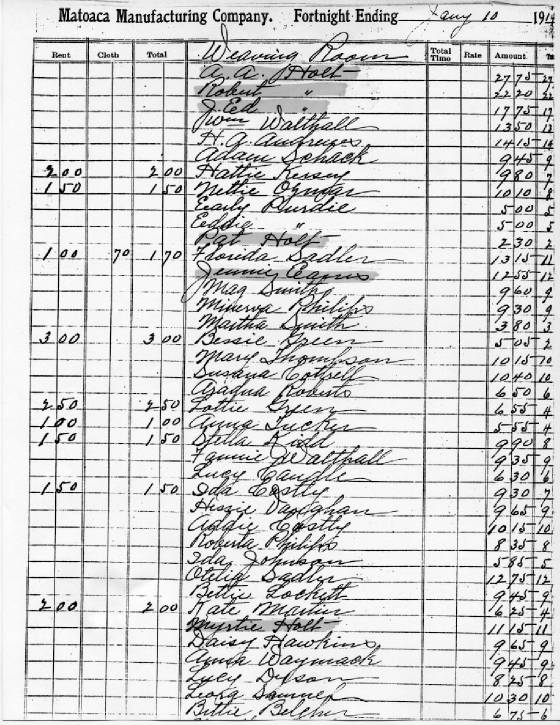 Matoaca Manufacturing Company. Fortnight Ending Jany 10 191
Rent Cloth Total Weaving Room Total Time Rate Amount
A. A. Holt 27 75
Robert " 22 20
J. Ed " 17 75
Walthall 13 50
H. A. 14 15
Adam Schack 9 45
2 00 2 00 Hattie Kersey 9 80
1 50 1 50 Nettie 10 10
Early Purdie 5 00
Eddie " 5 00
Pat Holt 2 30
1 00 70 1 70 Florida Sadler 13 15
Jennie Eanes 12 55
Mag Smith 9 60
Minerva Philips 9 30
Martha Smith 3 80
3 00 3 00 Bessie Green 5 05
Mary Thompson 10 15
Susana Cottrell 10 40
Robins 6 50
2 50 2 50 Lottie Green 6 55
1 00 1 00 Anna Tucker 5 55
1 50 1 50 Stella Kidd 9 90
Fannie J Walthall 9 35
Lucy Caudle 6 30
1 50 1 50 Ida Costly 9 30
Vaughan 9 65
Addie Costly 10 15
Roberta Philips 8 35
Ida Johnson 5 85
Otelia Sadler 12 75
Bettie Lockett 9 45
2 00 2 00 Kate Martin 6 25
Myrtie Holt 11 15
Daisy Hawkins 9 65
Anna Waymack 9 45
Lucy Dyson 8 25
Leora 10 30
Bettie Belcher 6 75